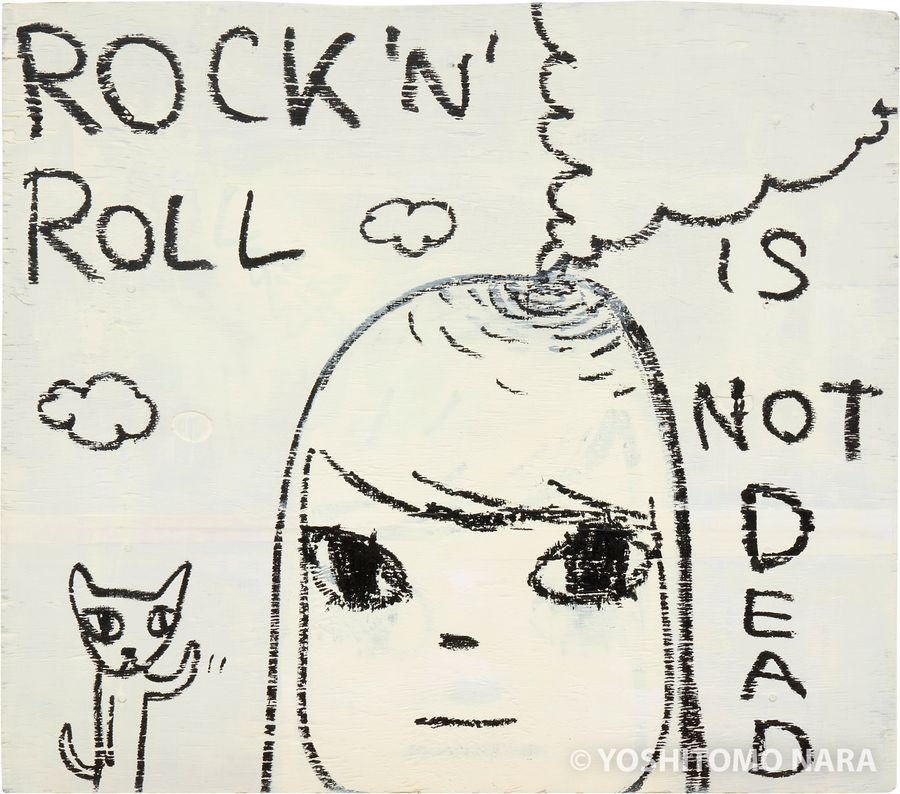 ROCK 'N'
ROLL
IS
NOT
DEAD
© YOSHITOMO NARA